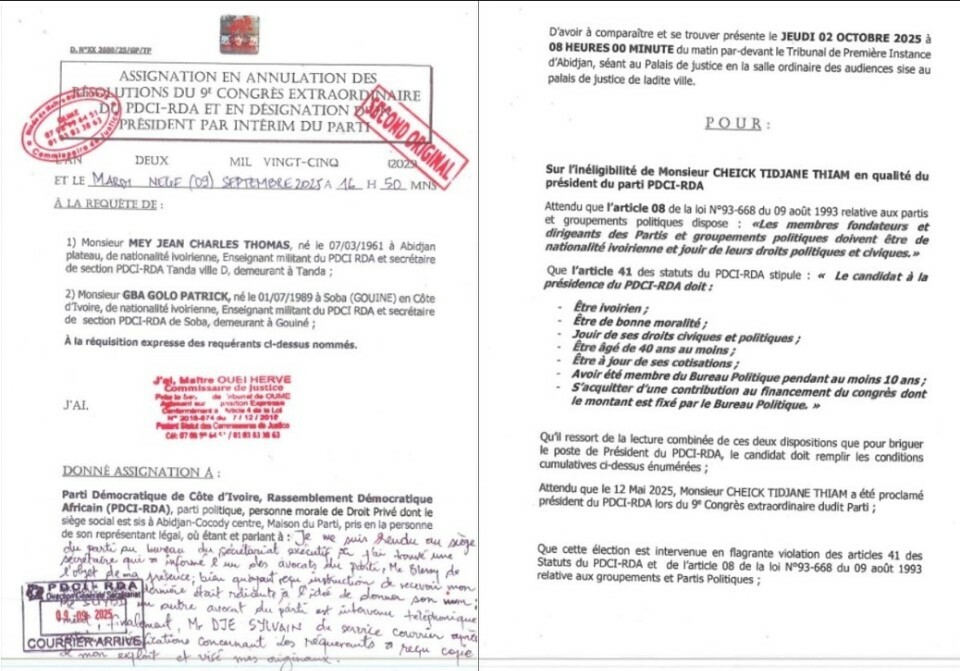 D. N°XX 2080/25/GP/TP
ASSIGNATION EN ANNULATION DES
RÉSOLUTIONS DU 9e CONGRÈS EXTRAORDINAIRE
DU PDCI-RDA ET EN DÉSIGNATION D
PRÉSIDENT PAR INTÉRIM DU PARTI
SECOND ORIGINAL
Commissaire de Justice
L'AN DEUX MIL VINGT-CINQ (2025)
ET LE MARDI NEUF (09) SEPTEMBRE 2025 A 16 H 50 MNS
À LA REQUÊTE DE :
1) Monsieur MEY JEAN CHARLES THOMAS, né le 07/03/1961 à Abidjan
plateau, de nationalité ivoirienne, Enseignant militant du PDCI RDA et secrétaire
de section PDCI-RDA Tanda ville D, demeurant à Tanda ;
2) Monsieur GBA GOLO PATRICK, né le 01/07/1989 à Soba (GOUINE) en Côte
d'Ivoire, de nationalité ivoirienne, Enseignant militant du PDCI RDA et secrétaire
de section PDCI-RDA de Soba, demeurant à Gouiné ;
À la réquisition expresse des requérants ci-dessus nommés.
J'ai, Maître OUEI HERVE
Commissaire de justice
Tribunal de OUME
Conformément à l'Article 4 de la Loi
Portant Statut des Commissaires de Justice
J'AI,
DONNÉ ASSIGNATION A :
Parti Démocratique de Côte d'Ivoire, Rassemblement Démocratique
Africain (PDCI-RDA), parti politique, personne morale de Droit Privé dont le
siège social est sis à Abidjan-Cocody centre, Maison du Parti, pris en la personne
de son représentant légal, où étant et parlant à : Je me suis rendu au siège
du parti au bureau du secrétariat exécutif j'ai trouvé une
secrétaire qui a informé l'un des avocats du parti, Me Blessy de
l'objet de ma présence; bien qu'ayant reçu instruction de recevoir mon
dernière était réticente à l'idée de donner son nom;
un autre avocat du parti est intervenu téléphoniquement
finalement, Mr DJE SYLVAIN du service courrier après
concernant les requérants a reçu copie
de mon exploit et visé mes originaux.
PDCI RDA
Direction Générale du Secrétariat
09 09 2025
COURRIER ARRIVÉ
D'avoir à comparaître et se trouver présente le JEUDI 02 OCTOBRE 2025 à
08 HEURES 00 MINUTE du matin par-devant le Tribunal de Première Instance
d'Abidjan, séant au Palais de justice en la salle ordinaire des audiences sise au
palais de justice de ladite ville.
POUR :
Sur l'inéligibilité de Monsieur CHEICK TIDJANE THIAM en qualité du
président du parti PDCI-RDA
Attendu que l'article 08 de la loi N°93-668 du 09 août 1993 relative aux partis
et groupements politiques dispose : «Les membres fondateurs et
dirigeants des Partis et groupements politiques doivent être de
nationalité ivoirienne et jouir de leurs droits politiques et civiques.»
Que l'article 41 des statuts du PDCI-RDA stipule : « Le candidat à la
présidence du PDCI-RDA doit :
- Être ivoirien ;
- Être de bonne moralité ;
- Jouir de ses droits civiques et politiques ;
- Être âgé de 40 ans au moins ;
- Être à jour de ses cotisations ;
- Avoir été membre du Bureau Politique pendant au moins 10 ans ;
- S'acquitter d'une contribution au financement du congrès dont
le montant est fixé par le Bureau Politique. »
Qu'il ressort de la lecture combinée de ces deux dispositions que pour briguer
le poste de Président du PDCI-RDA, le candidat doit remplir les conditions
cumulatives ci-dessus énumérées ;
Attendu que le 12 Mai 2025, Monsieur CHEICK TIDJANE THIAM a été proclamé
président du PDCI-RDA lors du 9e Congrès extraordinaire dudit Parti ;
Que cette élection est intervenue en flagrante violation des articles 41 des
Statuts du PDCI-RDA et de l'article 08 de la loi N°93-668 du 09 août 1993
relative aux groupements et Partis Politiques ;